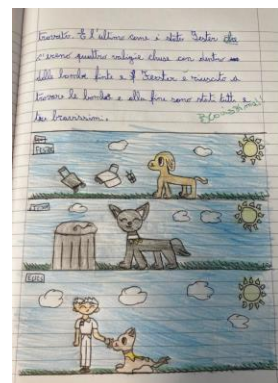 trovato. E l'ultimo cane è stato Fester che
c'erano quattro valigie chiuse con dentro
delle bombe finte e Fester è riuscito a
trovare le bombe e alla fine sono stati tutti e
tre bravissimi.